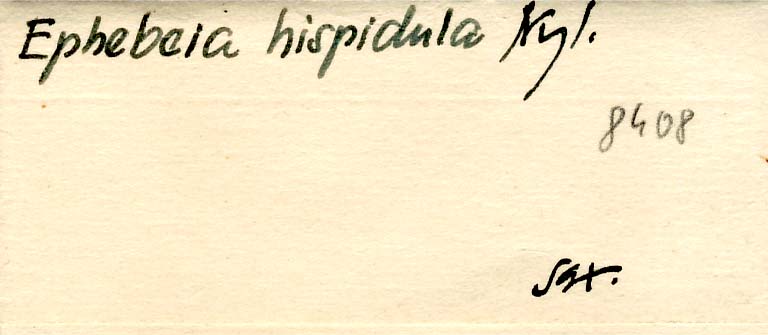 Ephebeia hispidula Nyl.
8408
sax.